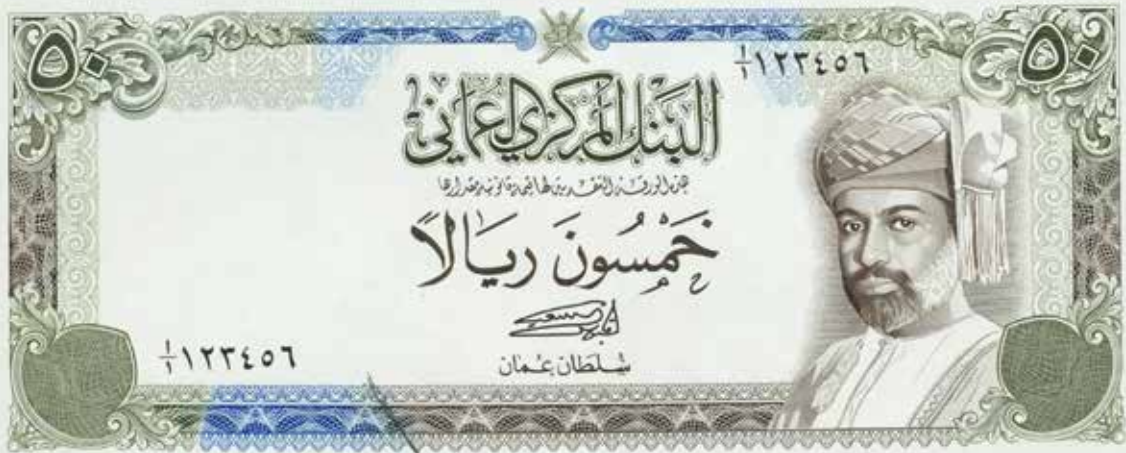 ٥٠
٥٠
١/١ ١٢٣٤٥٦
البنك المركزي العماني
هذه الورقة النقدية لها قيمة قانونية مقدارها
خَمْسُونَ ريَالاً
سلطان عمان
١/١ ١٢٣٤٥٦